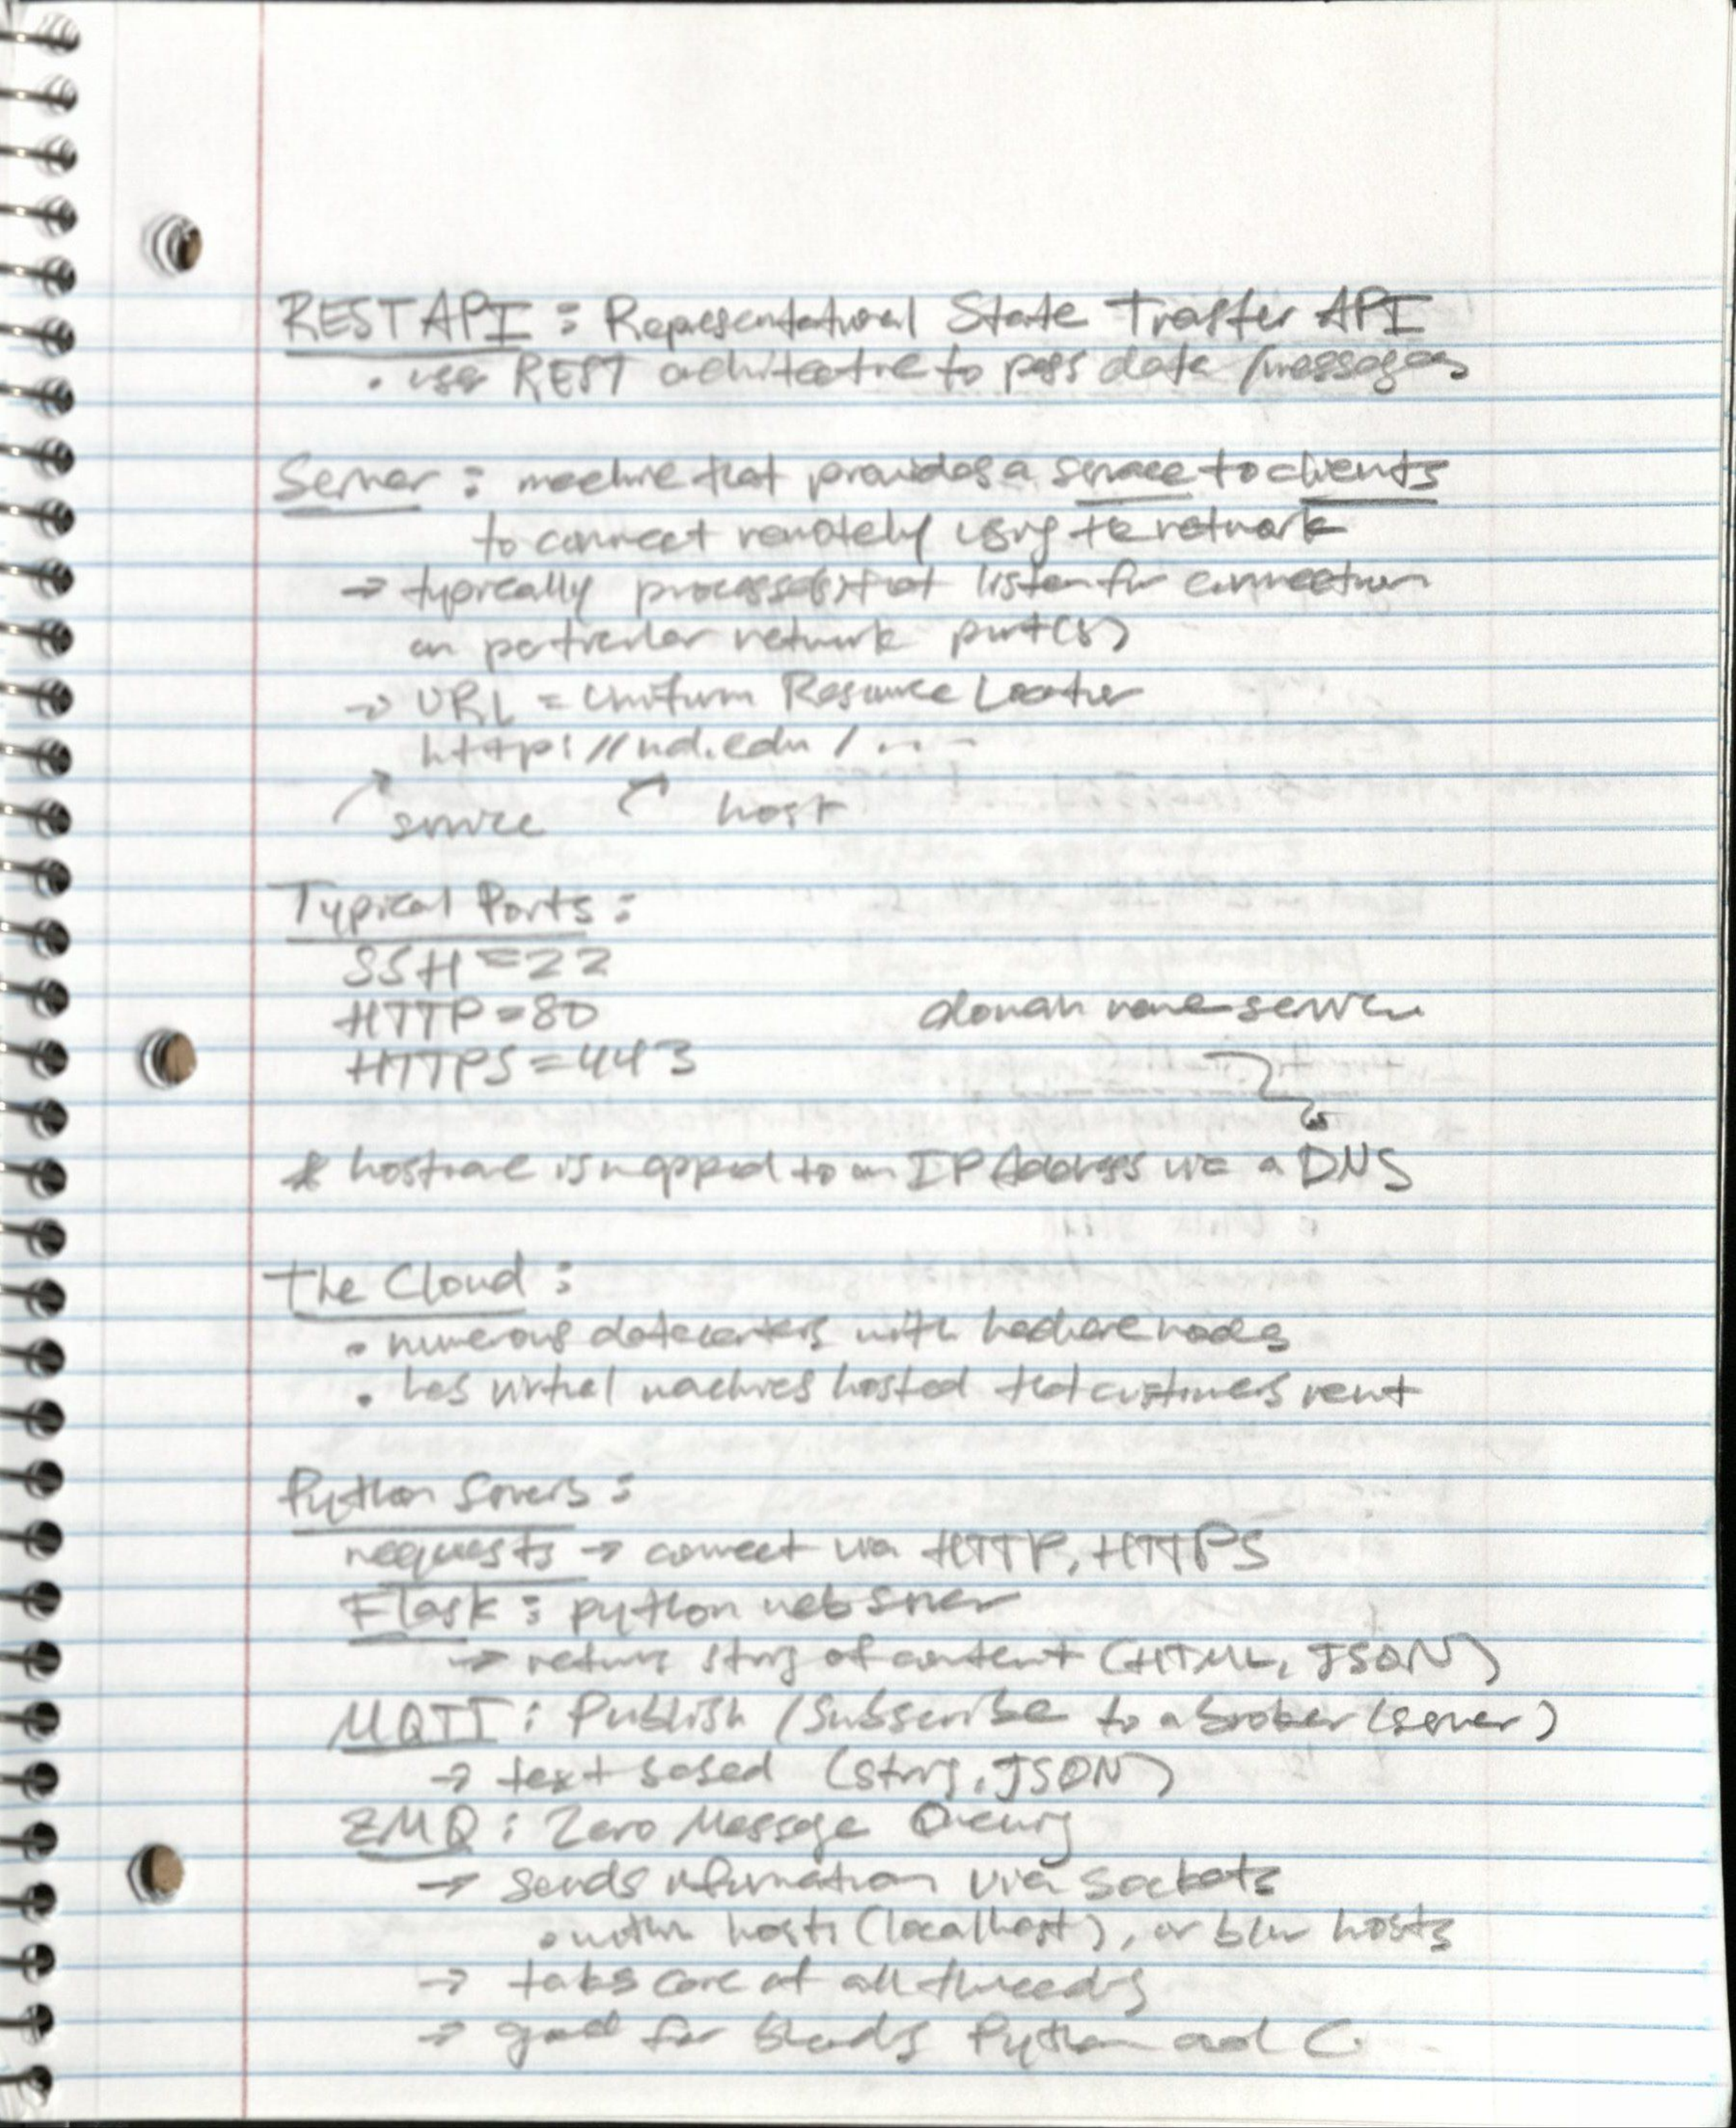 REST API : Representational State Trasfer API
• use REST architecture to pass data / messages
Server : machine that provides a service to clients
to connect remotely using the network
→ typically process(es) that listen for connection
on particular network port(s)
→ URL = Uniform Resource Locator
http://nd.edu/....
service host
Typical Ports :
SSH = 22
HTTP = 80
domain name service
HTTPS = 443
* hostname is mapped to an IP Address via a DNS
The Cloud :
• numerous datacenters with hardware nodes
• has virtual machines hosted that customers rent
Python Servers :
requests → connect via HTTP, HTTPS
Flask : python web server
→ returns string of content (HTML, JSON)
MQTT : Publish / Subscribe to a broker (server)
→ text based (string, JSON)
ZMQ : Zero Message Queuing
→ sends information via sockets
• within hosts (localhost), or b/w hosts
→ takes care of all threading
→ good for blending Python and C